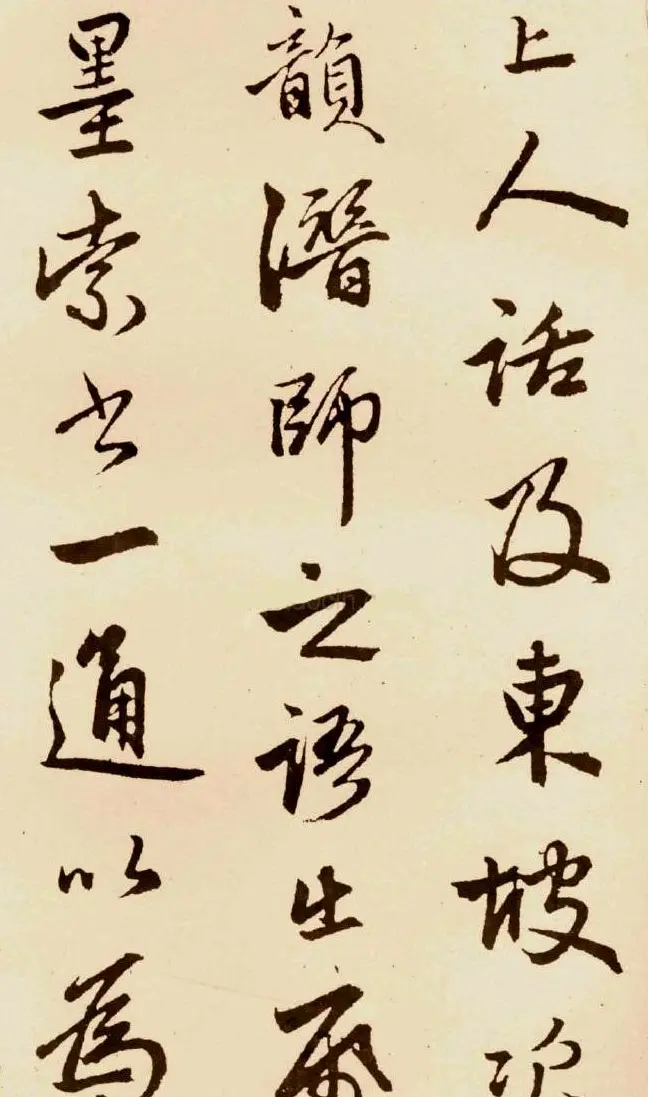 上人話及東坡次
韻潛師之語生
墨索書一通以為